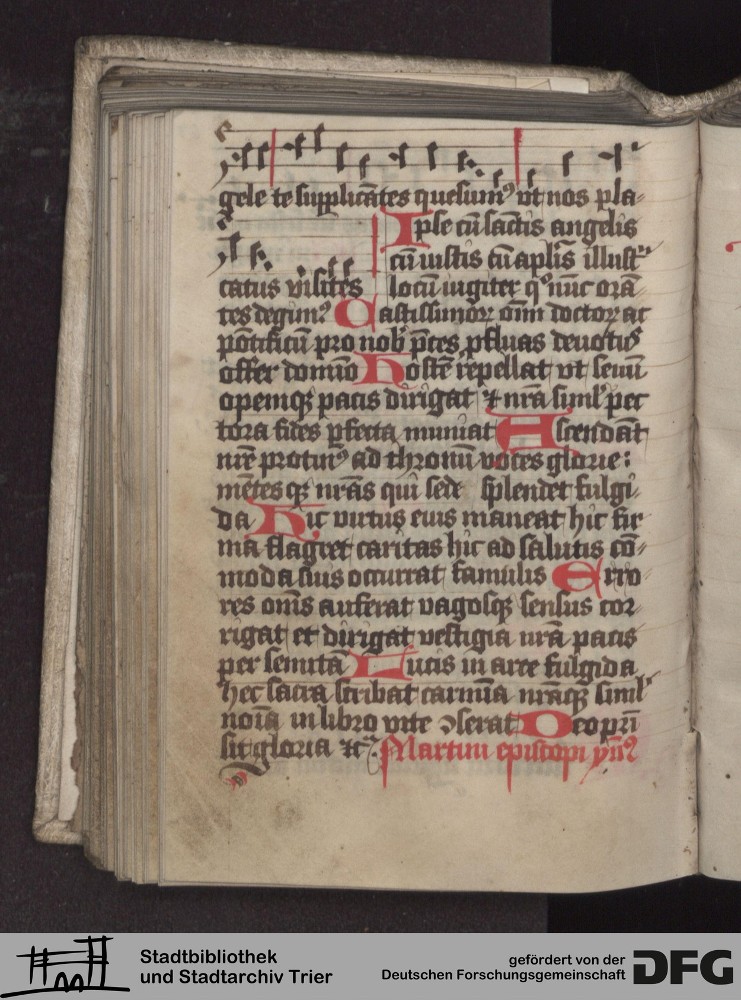 gele te supplicātes quesum⁹ vt nos pla-
Ipse cū sāctis angelis
cū iustis cū aplis illust
catus visites locū iugiter q° nūc orā
tes degim⁹ Castissimoꝝ omī doctoꝝ ac
pōtificū pro nob p̄ces pfluas deuotus
offer domīo Hostē repellat vt seuū
opemqꝫ pacis dirigat ⁊ nrā siml pec
tora fides pfecta muniat Ascendāt
nrē protin⁹ ad thronū voces glorie:
mētesqꝫ nrās qui sede splendet fulgi-
da Hic virtus eius maneat hic fir
ma flagret caritas hic ad salutis cō-
moda suis occurrat famulis Erro
res omīs auferat vagosqꝫ sensus cor
rigat et dirigat vestigia nrā pacis
per semitā Lucis in arce fulgida
hec sacra scribat carmīa nrāqꝫ siml
noīa in libro vite ꝯserat Deo pri
sit gloria ⁊c Martini episcopi ymꝰ
Stadtbibliothek
und Stadtarchiv Trier
gefördert von der
Deutschen Forschungsgemeinschaft
DFG